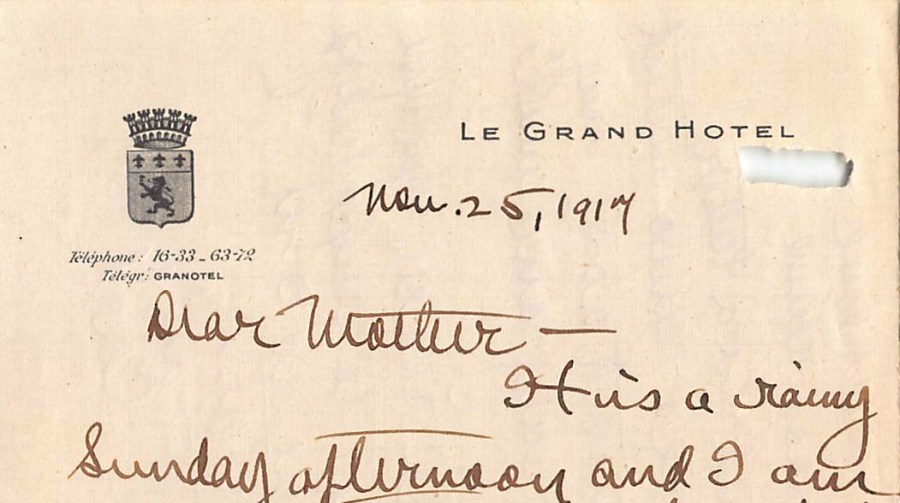 LE GRAND HOTEL
Nov. 25, 1917
Téléphone: 16-33 _ 63-72
Télégr: GRANOTEL
Dear Mother —
It is a rainy
Sunday afternoon and I am